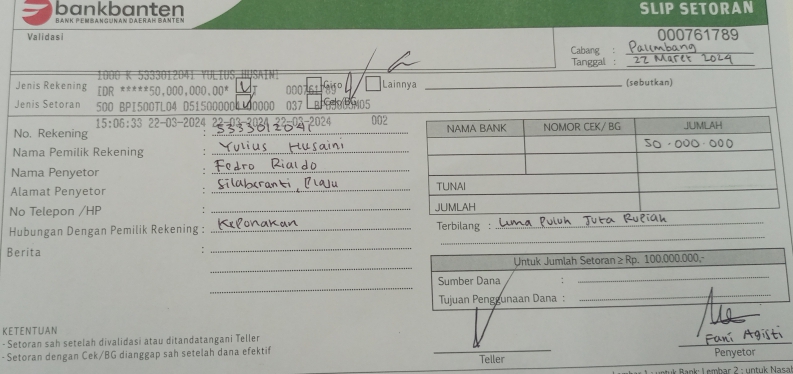 bankbanten
BANK PEMBANGUNAN DAERAH BANTEN
SLIP SETORAN
000761789
Validasi
Cabang : Palembang
Tanggal : 22 Maret 2024
1000 K 5333012041 YULIUS HUSAINI
Jenis Rekening Giro Lainnya (sebutkan)
IDR *****50,000,000.00*
Jenis Setoran Cek/BG
500 BPI500TL04 037
15:06:33 22-03-2024 22-03-2024 22-03-2024 002
No. Rekening : 5333012041
Nama Pemilik Rekening : Yulius Husaini
Nama Penyetor : Fedro Rialdo
Alamat Penyetor : Silaberanti, Plaju
No Telepon /HP :
Hubungan Dengan Pemilik Rekening : Keponakan
Berita :
NAMA BANK NOMOR CEK/ BG JUMLAH
50.000.000
TUNAI
JUMLAH
Terbilang : Lima Puluh Juta Rupiah
Untuk Jumlah Setoran ≥ Rp. 100.000.000,-
Sumber Dana :
Tujuan Penggunaan Dana :
KETENTUAN
- Setoran sah setelah divalidasi atau ditandatangani Teller
- Setoran dengan Cek/BG dianggap sah setelah dana efektif
Teller
Fani Agisti
Penyetor
Lembar 1 : untuk Bank; Lembar 2 : untuk Nasab